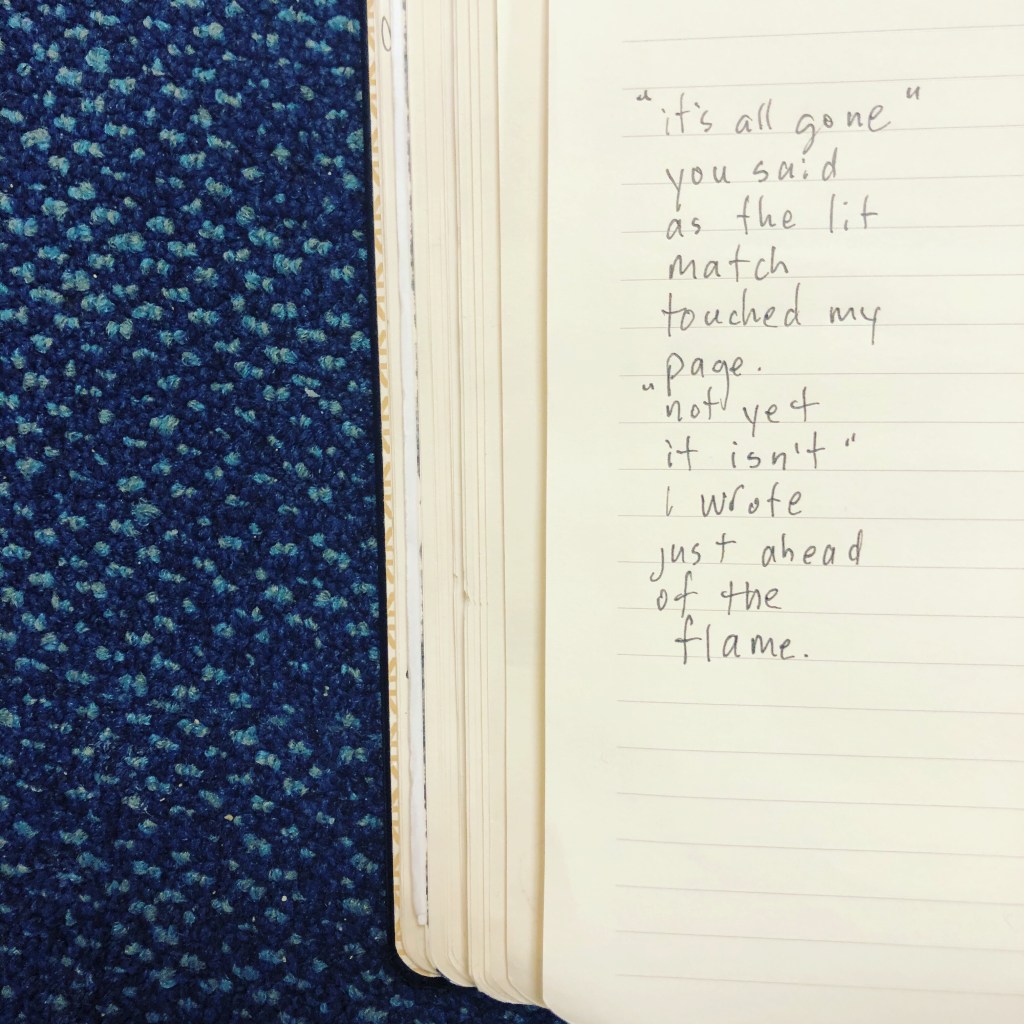 "it's all gone"
you said
as the lit
match
touched my
page.
"not yet
it isn't"
I wrote
just ahead
of the
flame.